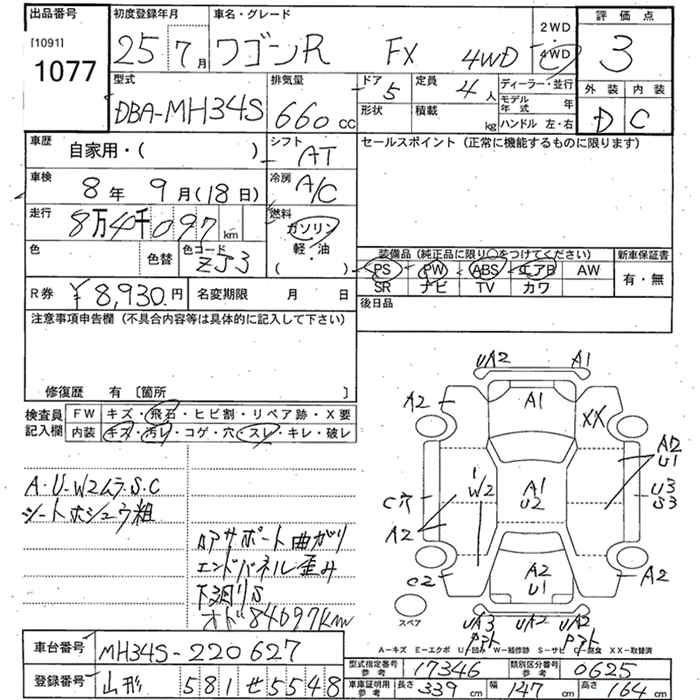 出品番号
[1091]
1077
初度登録年月
25 7月
車名・グレード
ワゴンR FX 4WD
2WD
4WD
評価点
3
外装 内装
D C
型式
DBA-MH34S
排気量
660 cc
ドア 5
形状
定員 4人
積載 kg
ディーラー・並行
モデル年式 年
ハンドル 左・右
車歴
自家用・( )
シフト
AT
セールスポイント (正常に機能するものに限ります)
車検
8年 9月(18日)
冷房
A/C
走行
8万4千097km
燃料
ガソリン
軽・油
( )
色
色替
色コード
ZJ3
装備品 (純正品に限り○をつけてください)
PS PW ABS エアB AW
SR ナビ TV カワ
新車保証書
有・無
R券 ¥8,930円
名変期限 月 日
後日品
注意事項申告欄 (不具合内容等は具体的に記入して下さい)
修復歴 有 〔箇所 〕
検査員記入欄
FW キズ・飛石・ヒビ割・リペア跡・X要
内装 キズ・汚レ・コゲ・穴・スレ・キレ・破レ
A・U・W2ムラ・S・C
シートホシュウ粗
ロアサポート曲がり
エンドパネル歪み
下廻りS
オド84097km
UA2 A1
A2 A1 XX
A2
U1
C穴 W2 A1
U2
U3
S3
A2
C2 A2
U1
A2
スペア
UA3 UA2 UA2
A－キズ E－エクボ U－凹み W－補修跡 S－サビ C－腐食 XX－取替済
車台番号 MH34S-220627
登録番号 山形 581 せ 5548
型式指定番号 参考 17346
類別区分番号 参考 0625
車庫証明用参考 長さ 339cm 幅 147cm 高さ 164cm